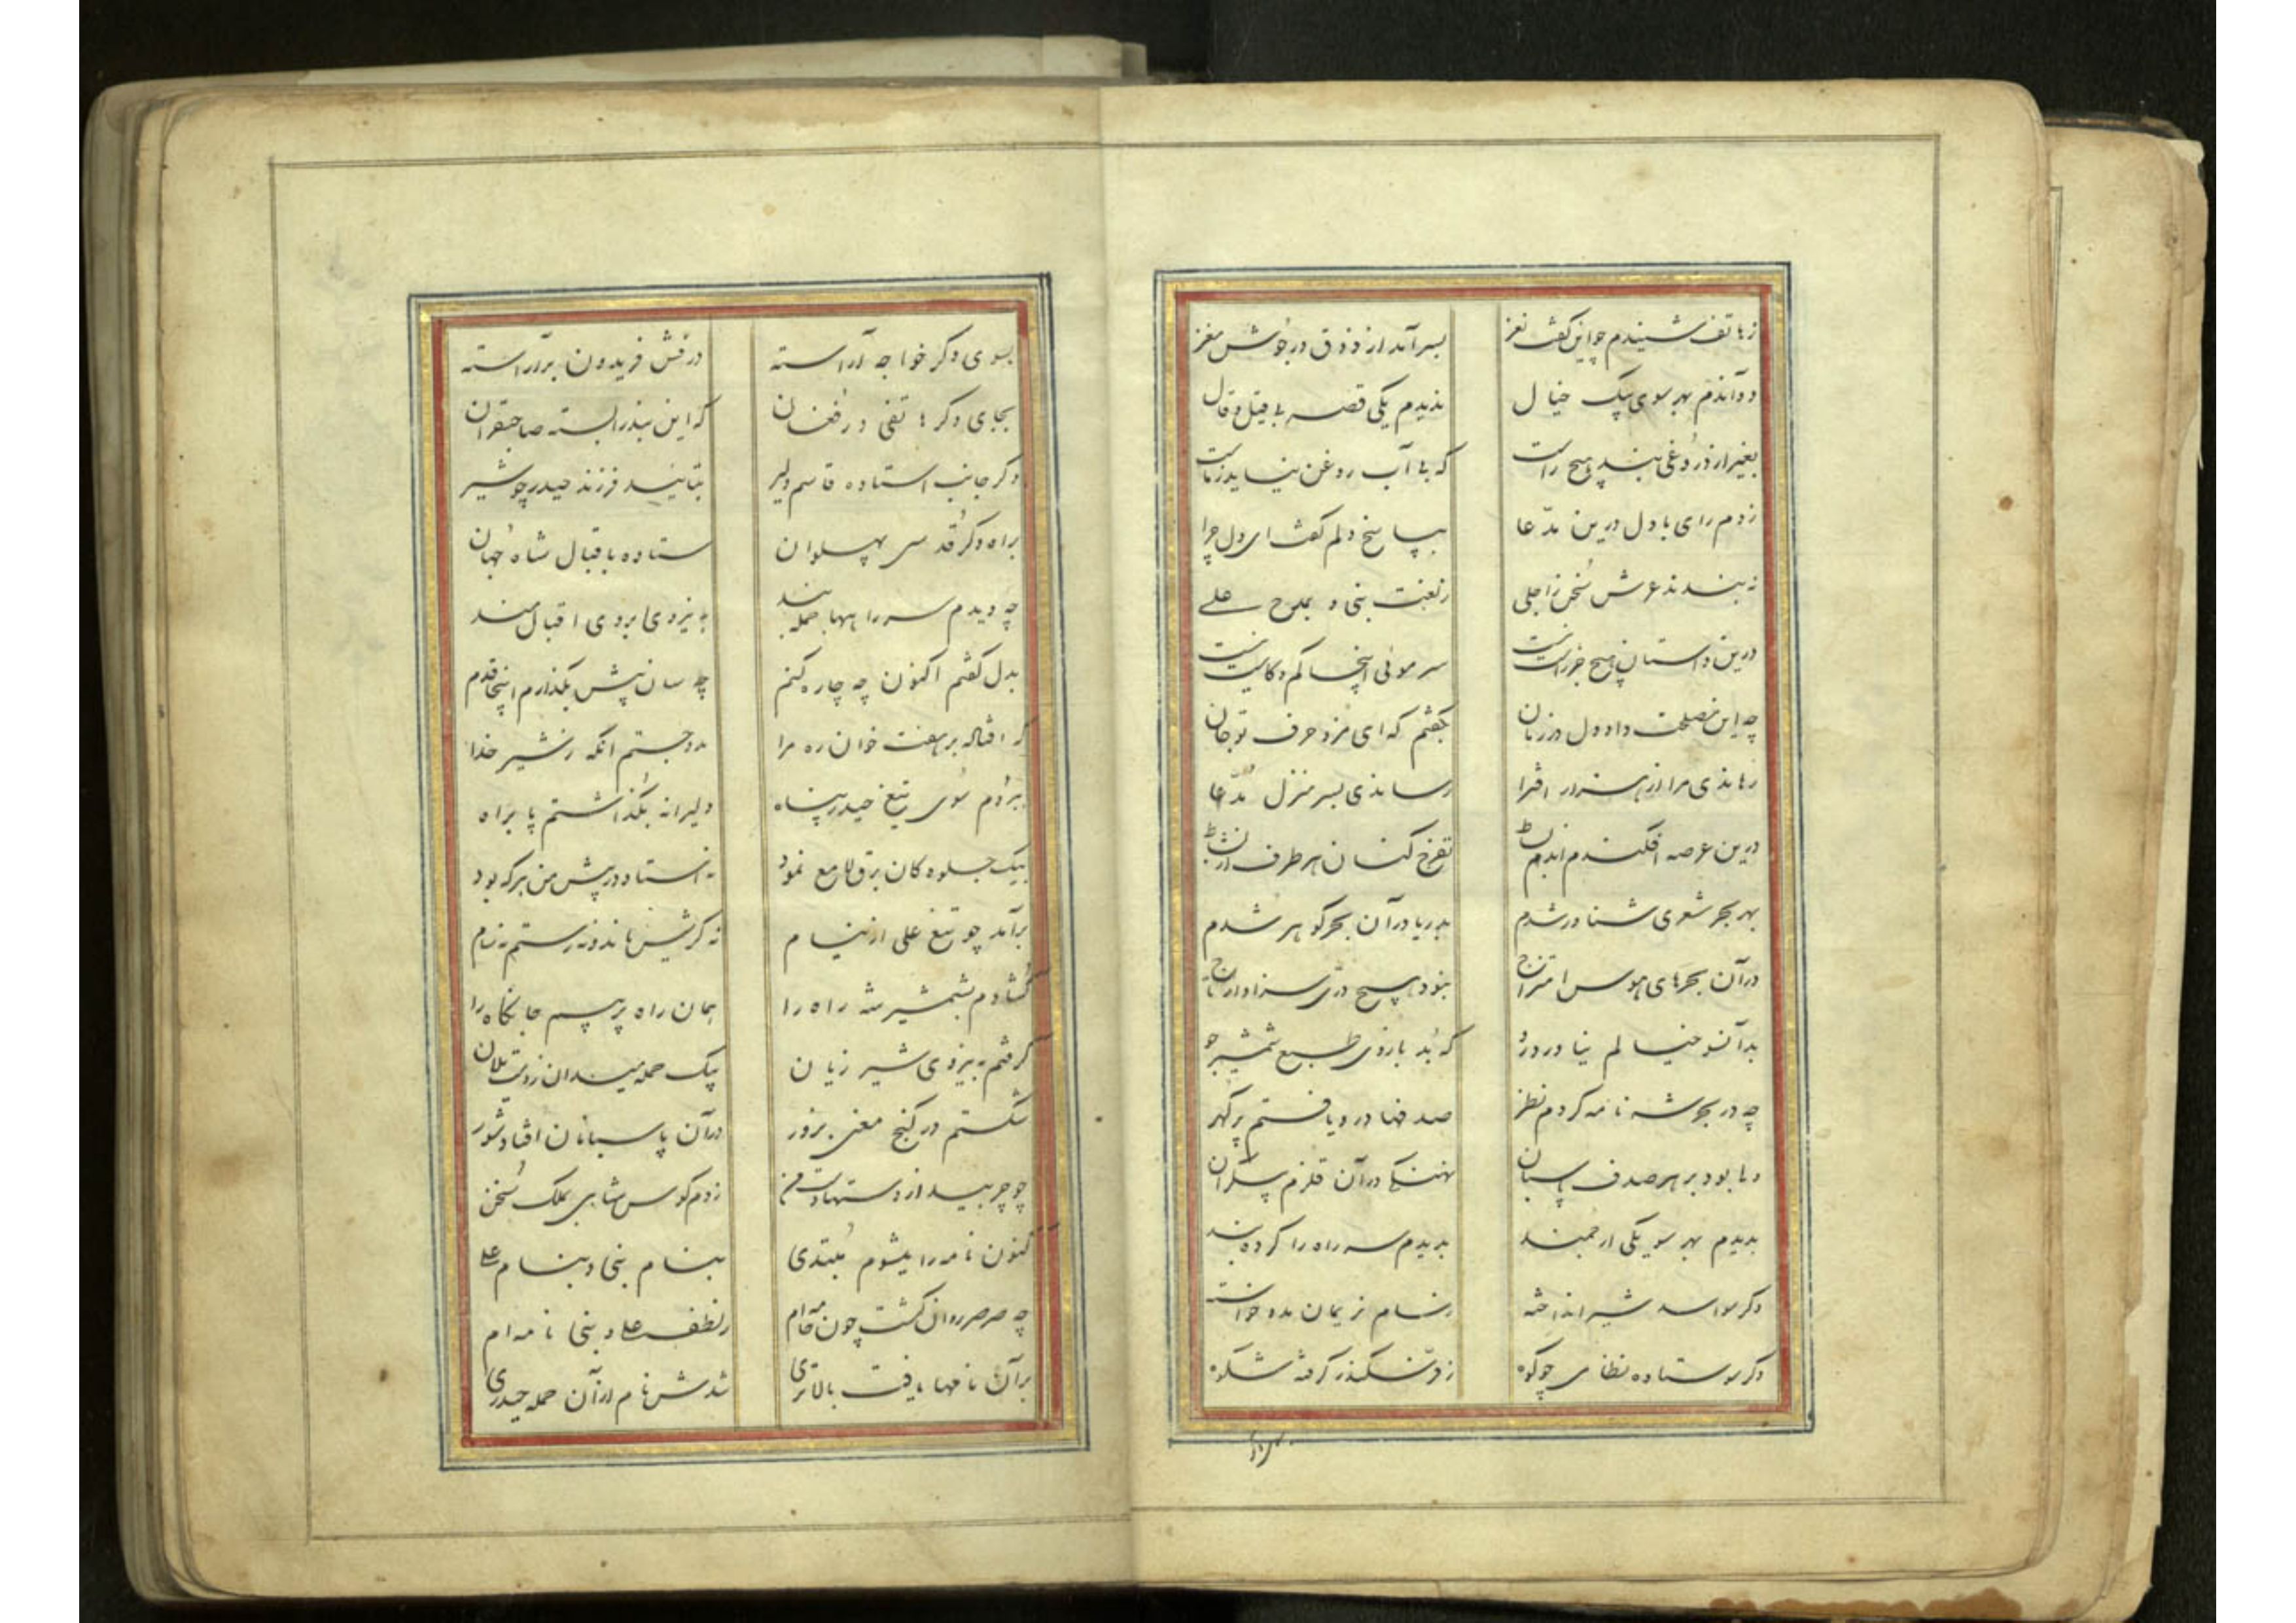 ز هاتف شنیدم چو این گفت نغز
بسر آمد از ذوق در جوش مغز
دواندم بهر سوی پیک خیال
ندیدم یکی قصه بی قیل و قال
بغیر از دروغی نبد هیچ راست
که بی آب روغن نیاید ز ماست
زدم رای با دل درین مدعا
بپاسخ دلم گفت ای دل چرا
ز نعت نبی و بمدح علی
درین داستان هیچ جز راست نیست
سر موئی اینجا کم و کاست نیست
چه این مصلحت داد دل در زمان
بگفتم که ای مزد حرف تو جان
رهاندی مرا از
رساندی بسر منزل مدعا
درین عرصه افکندم اندم بساط
تفرج کنان هر طرف از نشاط
بهر بحر شعری شناور شدم
بدریا در آن بحر گوهر شدم
در آن بحرهای هوس امتزاج
نبود هیچ دری سزاوار تاج
بدآنسو خیالم نیاورد رو
که بد بازوی طبع شمشیر جو
چه در بحر شه نامه کردم نظر
صدفها درو یافتم پر گهر
ولی بود بر هر صدف پاسبان
نهنگی در آن قلزم بیکران
بدیدم بهر سو یکی ارجمند
بدیدم سر راه را کرده بند
دگر سو اسد شیر انداخته
ز سام نریمان مدد خواسته
دگر سو ستاده نظامی چو کوه
ز فر سکندر گرفته شکوه
بسوی دگر خواجه آراسته
درفش فریدون برآراسته
بجای دگر هاتفی در فغان
که این بندر بسته صاحبقران
دگر جانب استاده قاسم دلیر
بتائید فرزند حیدر چو شیر
براه دگر قدسی پهلوان
ستاده باقبال شاه جهان
چه دیدم سر راهها جمله بند
به نیروی بروی اقبال مند
بدل گفتم اکنون چه چاره کنم
چه سان پیش بگذارم اینجا قدم
که افتاله بر هفت خوان ره مرا
مدد جستم انگه ز شیر خدا
ببردم سوی تیغ حیدر پناه
دلیرانه بگذاشتم پا براه
بیک جلوه کان برق لامع نمود
نه استاد در پیش من هر که بود
برآمد چو تیغ علی از نیام
نه گرشیس ماند و نه رستم نه سام
گشادم بشمشیر شه راه را
همان راه پر بیم جانکاه را
گرفتم به نیروی شیر ژیان
بیک حمله میدان ز دست یلان
شکستم در گنج معنی بزور
در آن پاسبانان افتاد شور
زدم کوس شاهی بملک سخن
کنون نامه را میشوم مبتدی
بنام نبی و بنام علی
چه صرصر روان گشت چون خامه‌ام
ز لطف علی و نبی نامه‌ام
بر آن نامها یافت بالاتری
شدش نام از آن حمله حیدری
بسوی